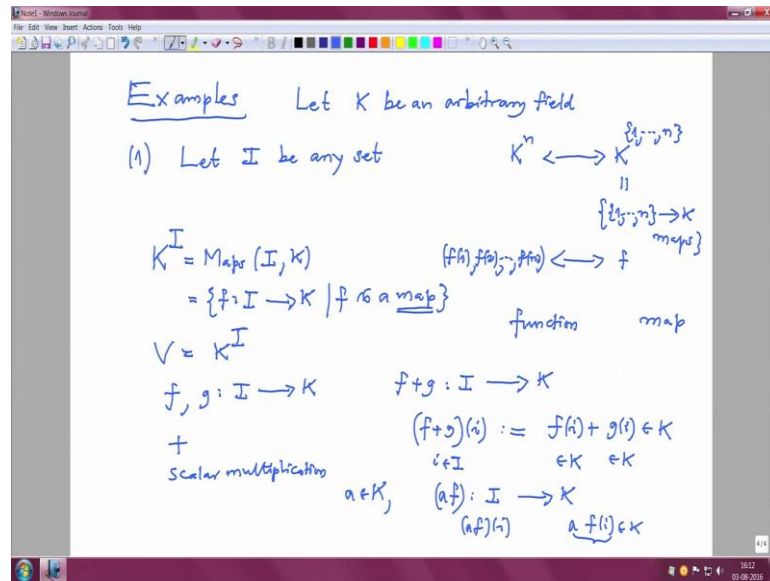 Note1 - Windows Journal
File Edit View Insert Actions Tools Help
B I
Examples Let K be an arbitrary field
(1) Let I be any set
K^n <—> K^{1,...,n}
||
{{1,...,n} → K
maps}
K^I = Maps (I, K)
(f(1), f(2), ..., f(n)) <—> f
= {f : I → K | f is a map}
function map
V = K^I
f, g : I → K f+g : I → K
+
(f+g)(i) := f(i) + g(i) ∈ K
i∈I ∈K ∈K
scalar multiplication
a ∈ K, (af) : I → K
(af)(i) a f(i) ∈ K
4/4
16:12
03-08-2016